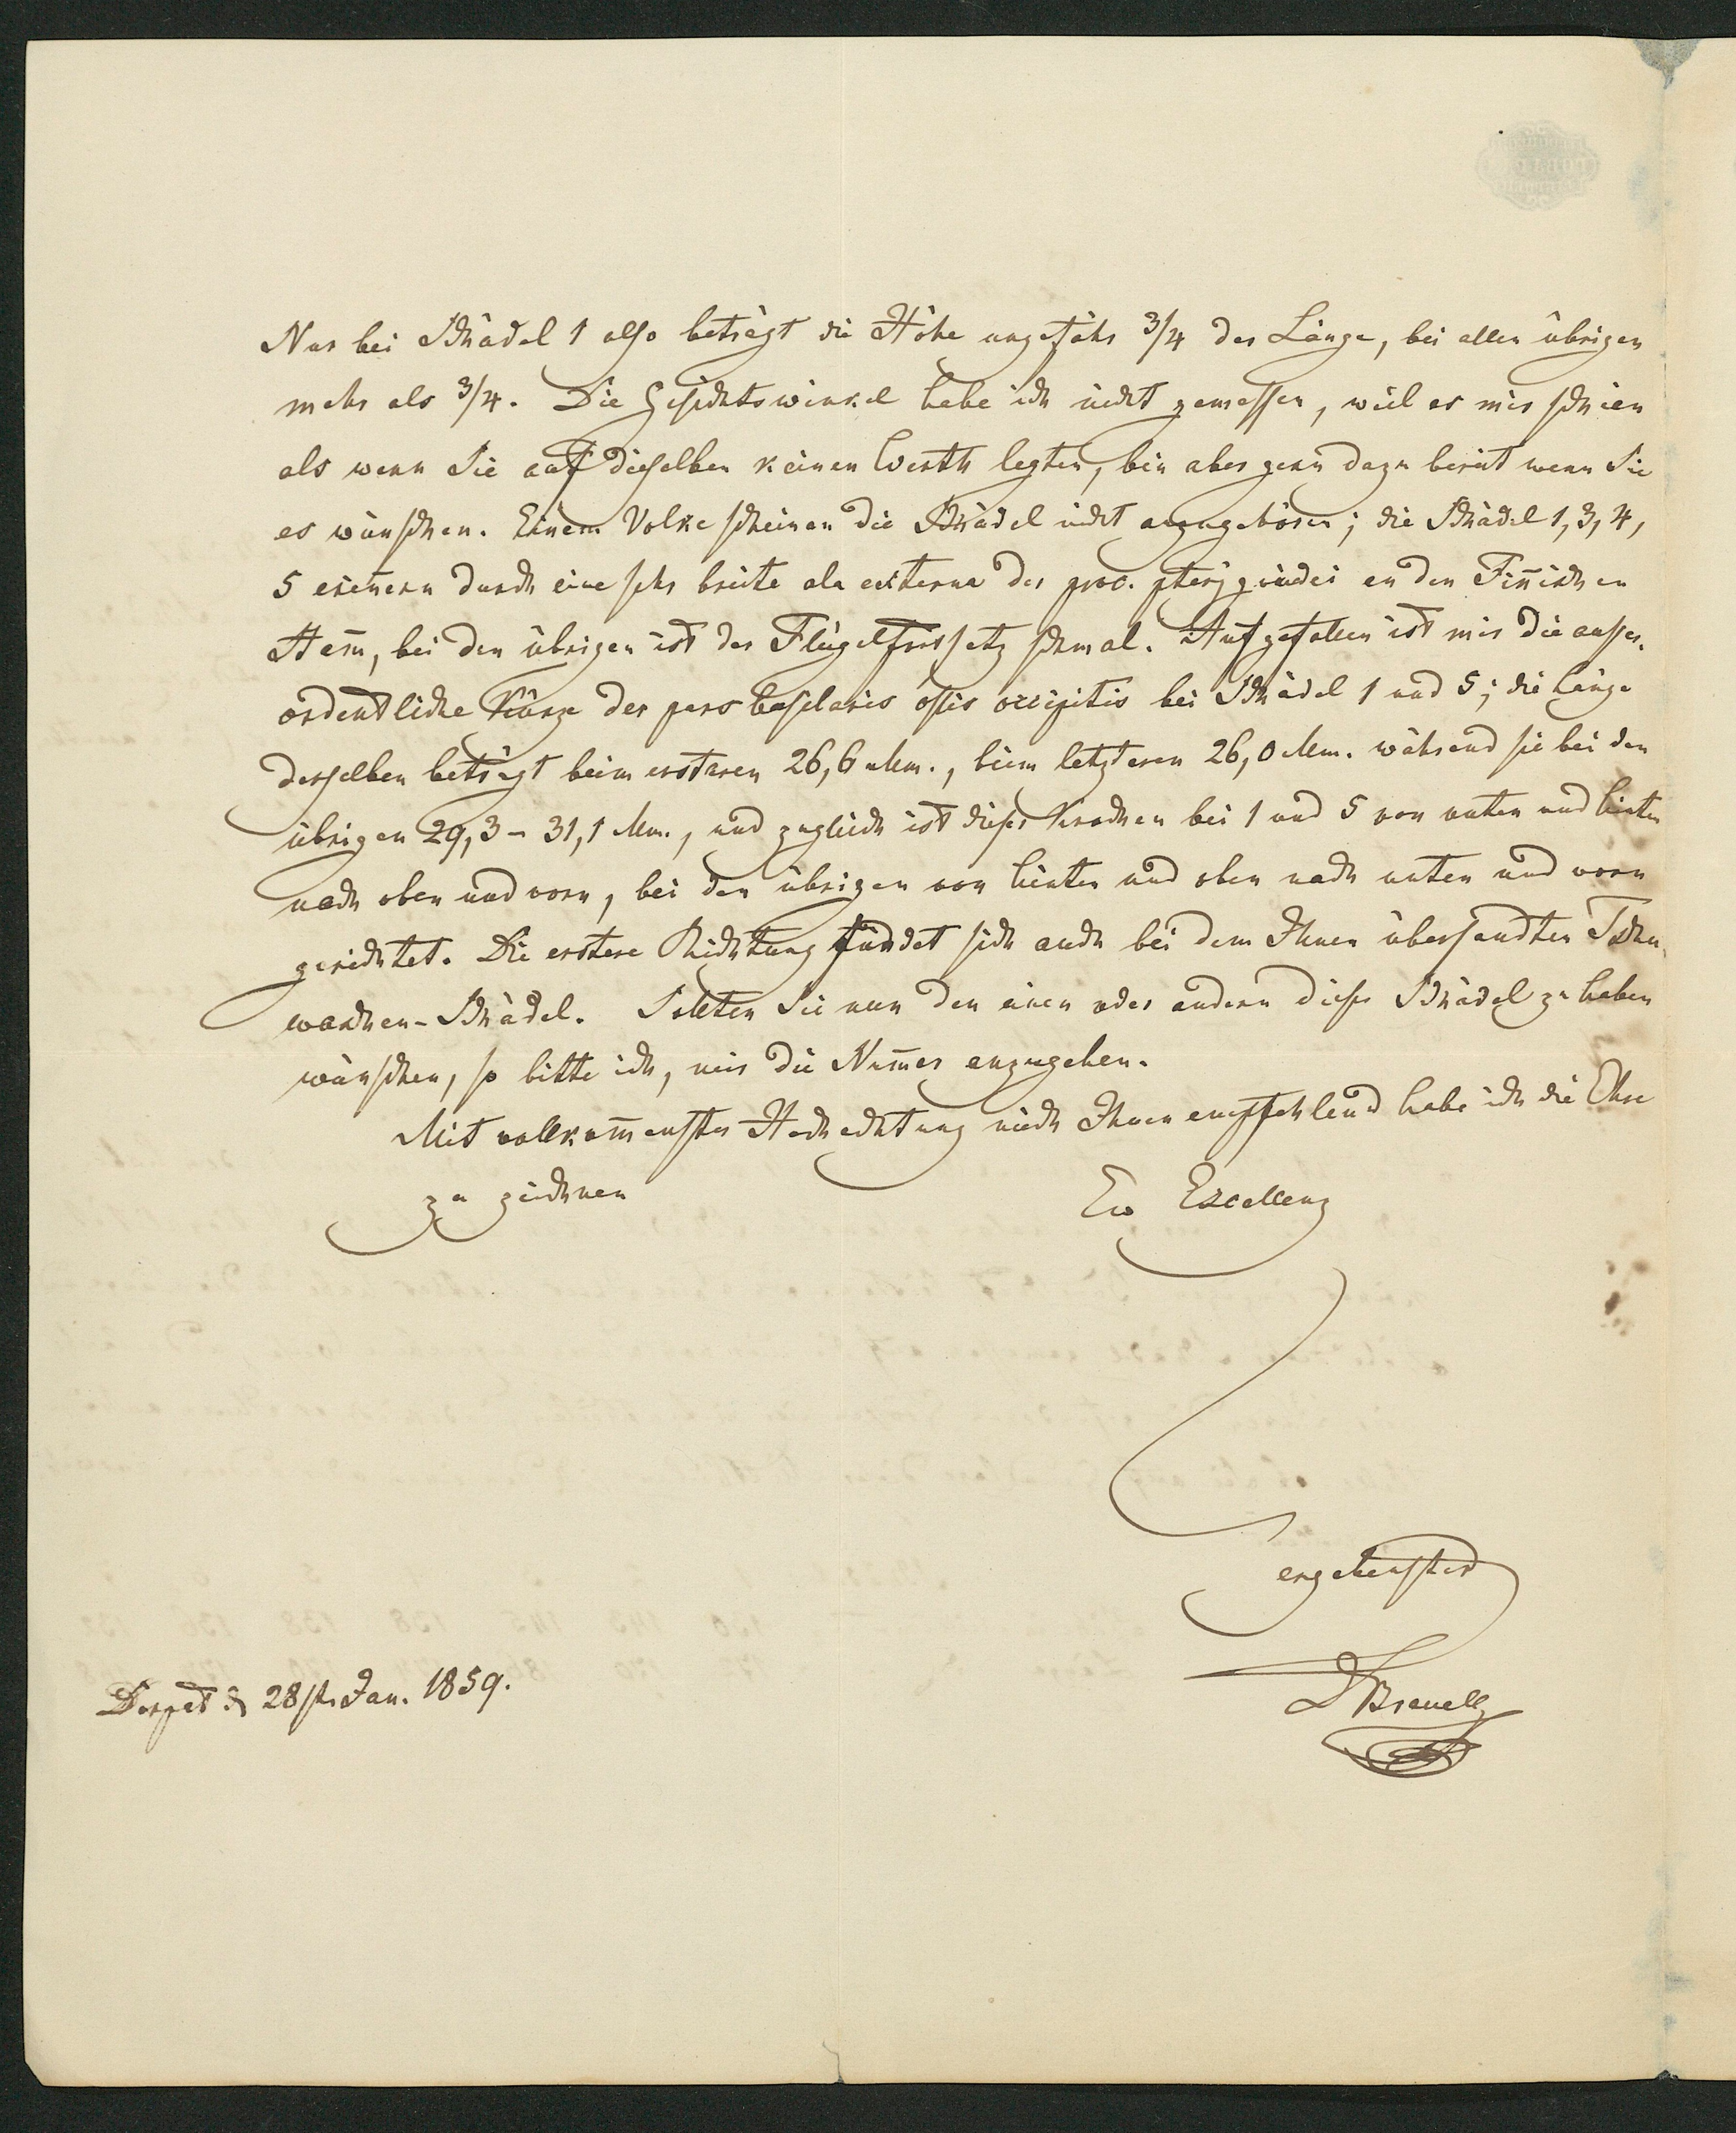 Nur bei Schädel 1 also beträgt die Höhe ungefähr 3/4 der Länge, bei allen übrigen
mehr als 3/4. Die Gesichtswinkel habe ich nicht gemessen, weil es mir schien
als wenn Sie auf dieselben keinen Werth legten, bin aber gern dazu bereit wenn Sie
es wünschen. Einem Volke scheinen die Schädel nicht anzugehören; die Schädel 1, 3, 4,
5 erinnern durch eine sehr breite ala externa des proc. pterygoidei an den Finnischen
Stam̅, bei den übrigen ist der Flügelfortsatz schmal. Aufgefallen ist mir die ausser-
ordentliche Kürze der pars basilaris ossis occipitis bei Schädel 1 und 5; die Länge
derselben beträgt beim ersteren 26,6 Mm., beim letzteren 26,0 Mm. während sie bei den
übrigen 29,3 - 31,1 Mm., und zugleich ist dieser Knochen bei 1 und 5 von unten und hinten
nach oben und vorn, bei den übrigen von hinten und oben nach unten und vorn
gerichtet. Die erstere Richtung findet sich auch bei dem Ihnen übersandten Tschu-
waschen-Schädel. Sollten Sie nun den einen oder andern dieser Schädel zu haben
wünschen, so bitte ich, mir die Num̅er anzugeben.
Mit vollkom̅enster Hochachtung mich Ihnen empfehlend habe ich die Ehre
zu zeichnen
Ew Excellenz
ergebenster
Brauell
Dorpat d. 28st. Jan. 1859.